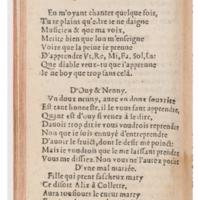 En m'oyant chanter quelque fois,
Tu te plains qu'estre ie ne daigne
Musicien & que ma voix,
Merite bien que lon m'enseigne
Voire que la peine ie prenne
D'apprendre Vt, Re, Mi, Fa, Sol, La:
Que diable veux-tu que i'apprenne
Ie ne boy que trop sans cela.
D'Ouy & Nenny.
Vn doux nenny, auec vn doux sourire
Est tant honneste, il le vous faut apprendre,
Quant est d'ouy si venez à le dire,
D'auoir trop dit ie vous voudrois reprendre
Non que ie sois ennuyé d'entreprendre
D'auoir le fruict, dont le desir me
Mais ie voudrois que me le laissant prendre
Vous me disiez, Non vous ne l'aurez point
D'vne mal mariée.
Fille qui prent fascheux mary
Ce disoit Alix à Collette,
Aura tousiours le cueur marry